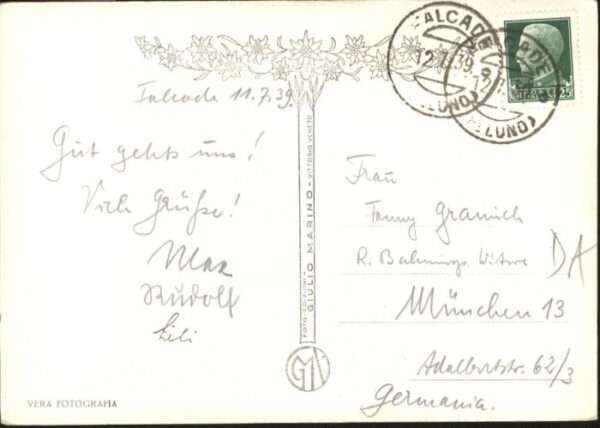 Falcade 11.7.39.
Gut gehts uns!
Viele Grüße!
Max
Rudolf
Lili
VERA FOTOGRAFIA
FOTO-EDIZIONE GIULIO MARINO - VITTORIO VENETO
GM
FALCADE
12.7.39
(BELLUNO)
FALCADE
(BELLUNO)
25
Frau
Fanny Gramich
R. Witwe
DA
München 13
Adalbertstr. 62/3
Germania.